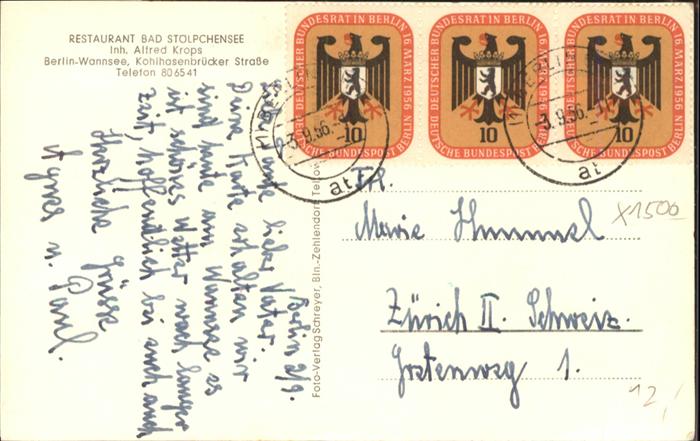 RESTAURANT BAD STOLPCHENSEE
Inh. Alfred Krops
Berlin-Wannsee, Kohlhasenbrücker Straße
Telefon 806541
DEUTSCHER BUNDESRAT IN BERLIN 16. MÄRZ 1956
10
DEUTSCHE BUNDESPOST BERLIN
DEUTSCHER BUNDESRAT IN BERLIN 16. MÄRZ 1956
10
DEUTSCHE BUNDESPOST BERLIN
DEUTSCHER BUNDESRAT IN BERLIN 16. MÄRZ 1956
10
DEUTSCHE BUNDESPOST BERLIN
BERLIN
3.9.56
at
BERLIN
3.9.56
at
Berlin 2/9.
lieber Vater.
Deine Karte erhalten wir
sind heute am Wannsee es
ist schönes Wetter nach langer
Zeit, hoffentlich bei euch auch
Herzliche Grüsse
Agnes u. Paul.
Foto-Verlag Schreyer, Bln.-Zehlendorf, Teltow
Marie Hummel
Zürich II. Schweiz.
1.
x1500
12,